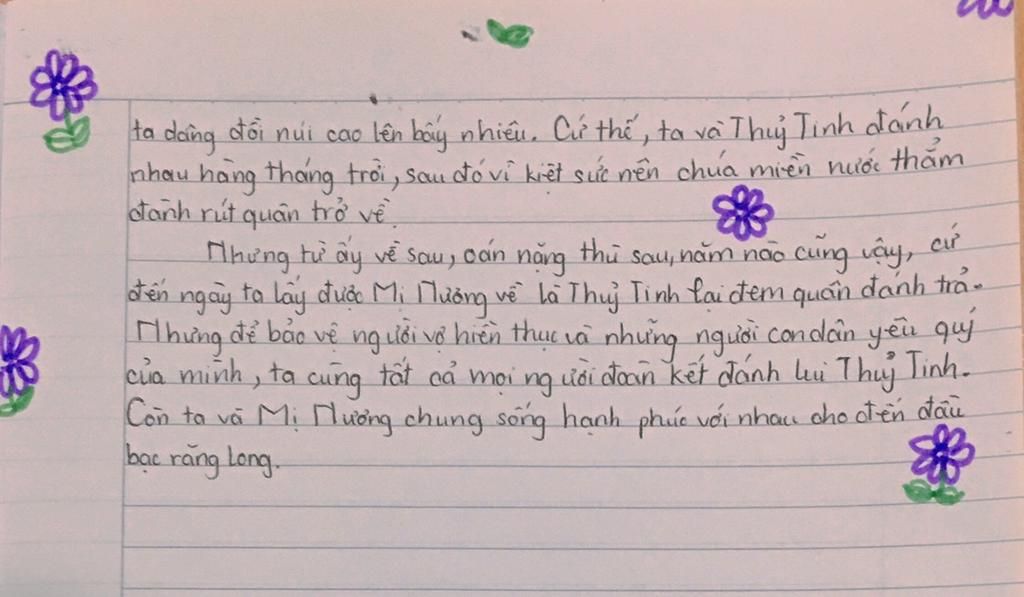 ta dâng đồi núi cao lên bấy nhiêu. Cứ thế, ta và Thuỷ Tinh đánh
nhau hàng tháng trời, sau đó vì kiệt sức nên chúa miền nước thẳm
đành rút quân trở về
Nhưng từ ấy về sau, oán nặng thù sau, năm nào cũng vậy, cứ
đến ngày ta lấy được Mị Nương về là Thuỷ Tinh lại đem quân đánh trả.
Nhưng để bảo vệ người vợ hiền thục và những người con dân yêu quý
của mình, ta cùng tất cả mọi người đoàn kết đánh lui Thuỷ Tinh.
Còn ta và Mị Nương chung sống hạnh phúc với nhau cho đến đầu
bạc răng long.